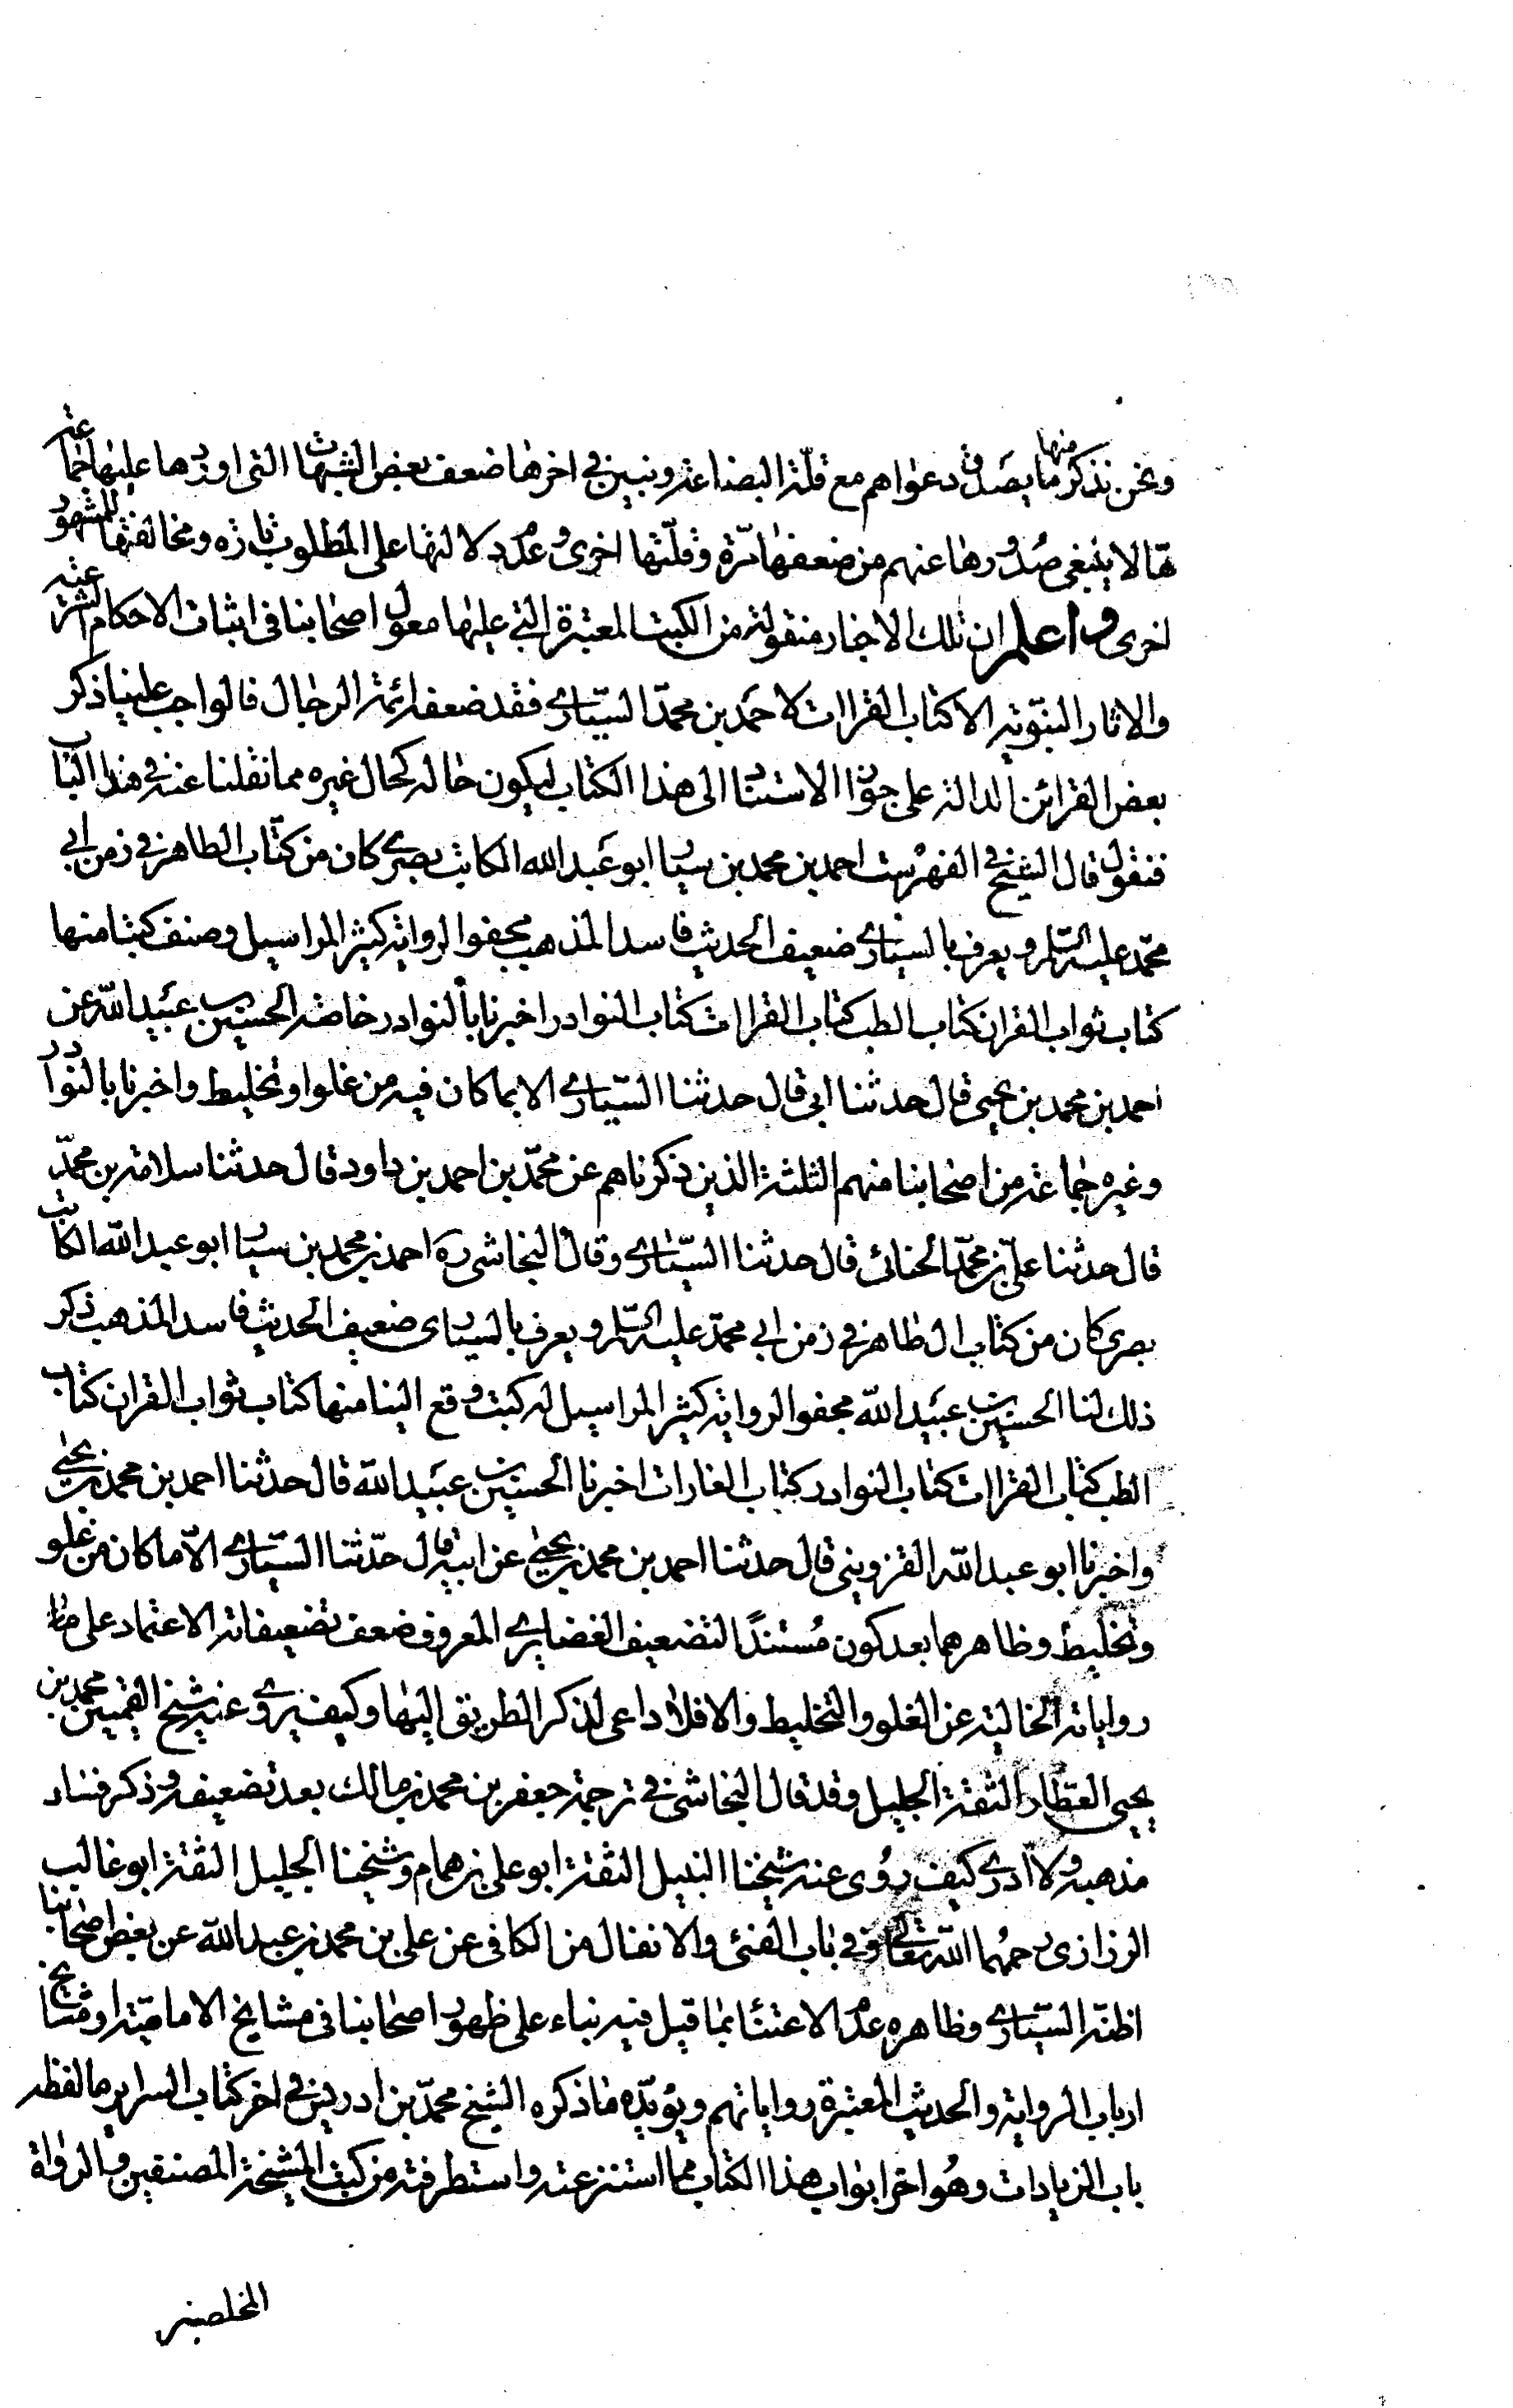 ونحن نذكر منها ما يصدق دعواهم مع قلة البضاعة ونبين في اخرها ضعف بعض الشبهات التي اوردها عليها جماعة
مما لا ينبغي صدورها عنهم من ضعفها تارة وقلتها اخرى وعدم دلالتها على المطلوب تارة ومخالفتها للمشهور
اخرى واعلم ان تلك الاخبار منقولة من الكتب المعتبرة التي عليها معول اصحابنا في اثبات الاحكام الشرعية
والاثار النبوية الا كتاب القراات لاحمد بن محمد السياري فقد ضعفه ائمة الرجال فالواجب علينا ذكر
بعض القرائن الدالة على جواز الاستناد الى هذا الكتاب ليكون حاله كحال غيره مما نقلنا عنه في هذا الباب
فنقول قال الشيخ في الفهرست احمد بن محمد بن سيار ابو عبد الله الكاتب بصري كان من كتاب الطاهر في زمن ابي
محمد عليه السلم ويعرف بالسياري ضعيف الحديث فاسد المذهب مجفو الرواية كثير المراسيل وصنف كتبا منها
كتاب ثواب القران كتاب الطب كتاب القراات كتاب النوادر اخبرنا بالنوادر خاصة الحسين بن عبيد الله عن
احمد بن محمد بن يحيى قال حدثنا ابي قال حدثنا السياري الا بما كان فيه من غلو او تخليط واخبرنا بالنوادر
وغيره جماعة من اصحابنا منهم الثلثة الذين ذكرناهم عن محمد بن احمد بن داود قال حدثنا سلامة بن محمد
قال حدثنا علي بن محمد الحنائي قال حدثنا السياري وقال النجاشي ره احمد بن محمد بن سيار ابو عبد الله الكاتب
بصري كان من كتاب ال طاهر في زمن ابي محمد عليه السلم ويعرف بالسياري ضعيف الحديث فاسد المذهب ذكر
ذلك لنا الحسين بن عبيد الله مجفو الرواية كثير المراسيل له كتب وقع الينا منها كتاب ثواب القران كتاب
الطب كتاب القراات كتاب النوادر كتاب الغارات اخبرنا الحسين بن عبيد الله قال حدثنا احمد بن محمد بن يحيى
واخبرنا ابو عبد الله القزويني قال حدثنا احمد بن محمد بن يحيى عن ابيه قال حدثنا السياري الا ما كان من غلو
وتخليط وظاهرهما بعد كون مستندا لتضعيف الغضايري المعروف ضعف تضعيفاته الاعتماد على
رواياته الخالية عن الغلو والتخليط والا فلا داعي لذكر الطريق اليها وكيف يروي عنه شيخ القميين محمد بن
يحيى العطار الثقة الجليل وقد قال النجاشي في ترجمة جعفر بن محمد بن مالك بعد تضعيفه وذكر فساد
مذهبه ولا ادري كيف روى عنه شيخنا النبيل الثقة ابو علي بن همام وشيخنا الجليل الثقة ابو غالب
الرزازي رحمهما الله تعالى وفي باب الفئ والانفال من الكافي عن علي بن محمد بن عبد الله عن بعض اصحابنا
اظنه السياري وظاهره عدم الاعتناء بما قيل فيه بناء على ظهور اصحابنا في مشايخ الامامية او مشايخ
ارباب الرواية والحديث المعتبرة رواياتهم ويؤيده ما ذكره الشيخ محمد بن ادريس في اخر كتاب السراير ما لفظه
باب الزيادات وهو اخر ابواب هذا الكتاب مما استنزعته واستطرفته من كتب المشيخة المصنفين والرواة
المخلصين